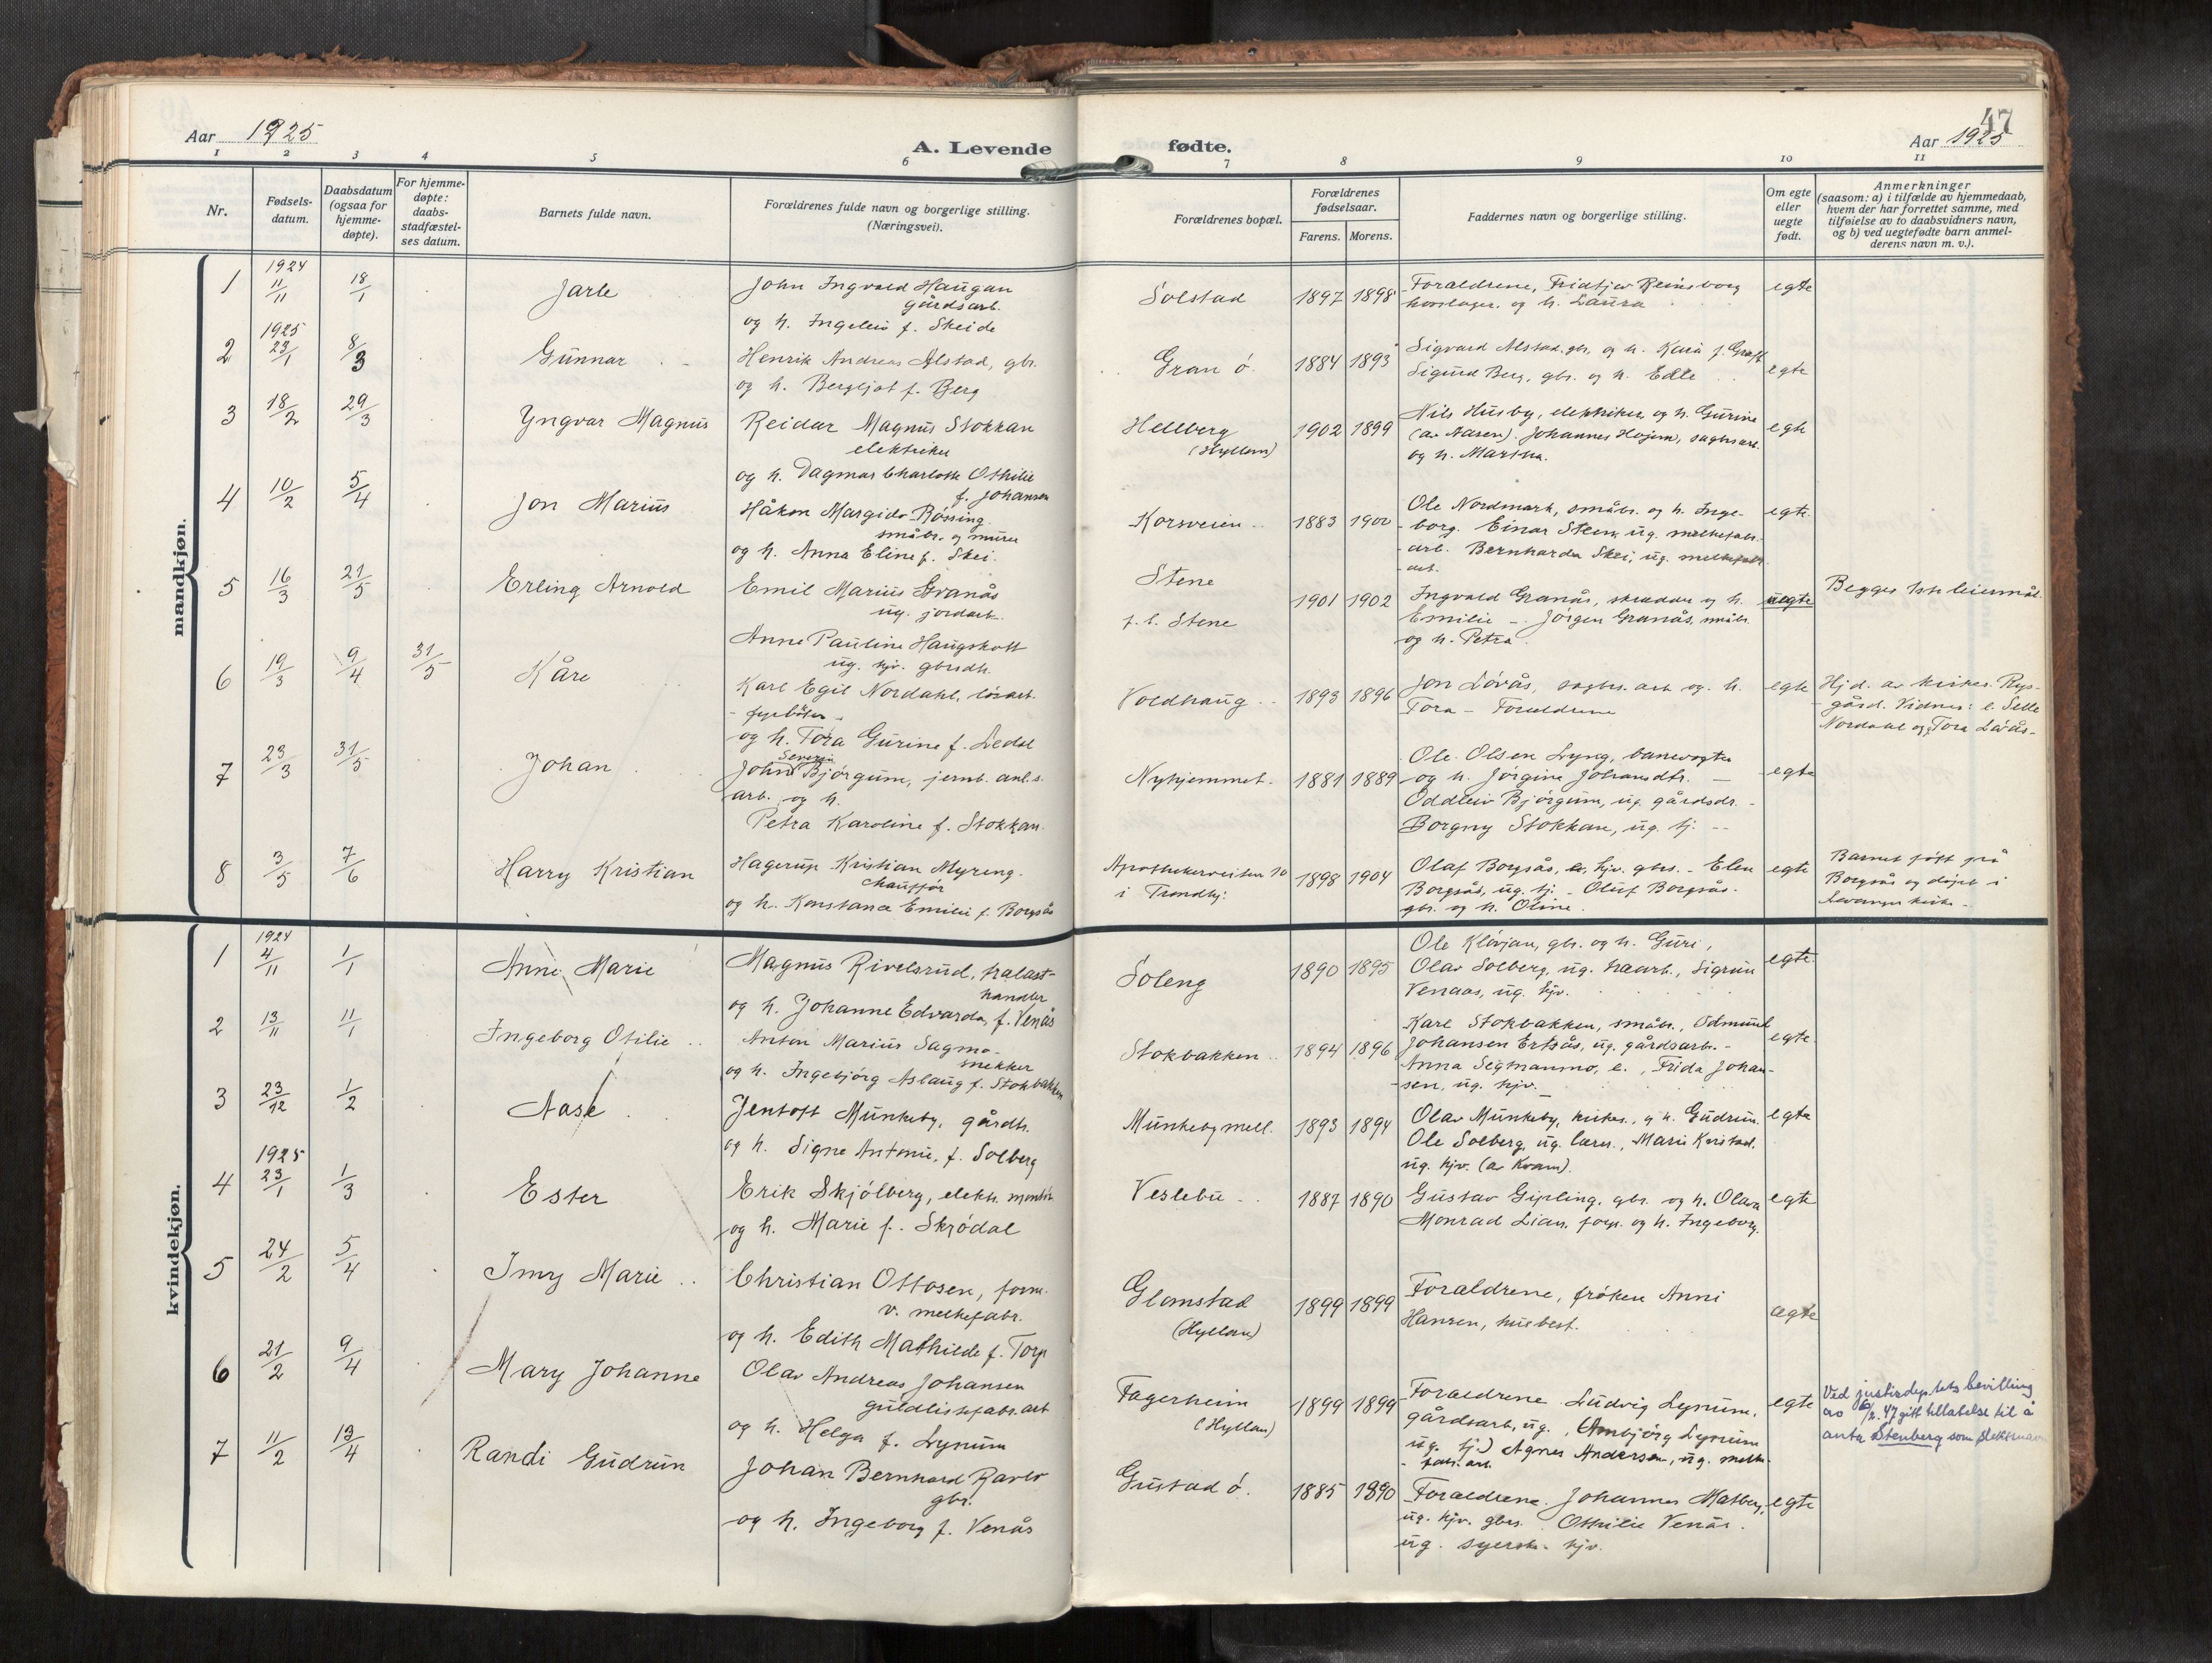 47
Aar 1925
A. Levende
fødte.
Aar 1925
1 2 3 4 5 6 7 8 9 10 11
Nr.
Fødsels-
datum.
Daabsdatum
(ogsaa for
hjemme-
døpte).
For hjemme-
døpte:
daabs-
stadfæstel-
ses datum.
Barnets fulde navn.
Forældrenes fulde navn og borgerlige stilling.
(Næringsvei).
Forældrenes bopæl.
Forældrenes
fødselsaar.
Farens. Morens.
Faddernes navn og borgerlige stilling.
Om egte
eller
uegte
født.
Anmerkninger
(saasom: a) i tilfælde av hjemmedaab,
hvem der har forrettet samme, med
tilføielse av to daabsvidners navn,
og b) ved uegtefødte barn anmel-
derens navn m. v.).
mandkjøn.
1 1924 11/11 18/1 Jarle
John Ingvald Haugan
gårdsarb.
og h. Ingeleiv f. Skeide
Solstad 1897 1898
Forældrene, Fridtjov Reinsborg
og h. Laura
egte
2 1925 23/1 8/3 Gunnar
Henrik Andreas Alstad, gbr.
og h. Bergljot f. Berg
Gran ø. 1884 1893
Sigvard Alstad, gbr, og h. Karia f. Graff
Sigurd Berg, gbr. og h. Edle
egte
3 18/2 29/3 Yngvar Magnus
Reidar Magnus Stokkan
elektriker
og h. Dagmar Charlotte Othilie
f. Johansen
Hellberg
(Hyllan)
1902 1899
Nils Husby, elektriker og h. Gurine
(av Aasen). Johannes Hojem, sagbr.arb.
og h. Martha.
egte
4 10/2 5/4 Jon Marius
Håkon Margido Røssing
småbr. og murer
og h. Anna Eline f. Skei.
Korsveien 1883 1900
Ole Nordmark, småbr. og h. Inge-
borg. Einar Steen, ug. melkefabr.
arb. Bernharda Skei, ug. melkefabr.
arb.
egte
5 16/3 21/5 Erling Arnold
Emil Marius Granås
ug. jordarb.
Anne Pauline Haugskott
ug. hjv. gbrdtr.
Stene
f. t. Stene
1901 1902
Ingvald Granås, skrædder og h.
Emilie – Jørgen Granås, småbr.
og h. Petra
uegte
Begges 1ste leiermål.
6 19/3 9/4 31/5 Kåre
Karl Egil Nordahl, løsarb.
- fyrbøter -
og h. Tora Gurine f. Ledal
Voldhaug 1893 1896
Jon Løvås, sagbr. arb og h.
Tora – Forældrene
egte
Hjd. av kirkes. Rys-
gård. Vidner: e. Selle
Nordahl og Tora Løvås-
7 23/3 31/5 Johan
John Severin Bjørgum, jernb. anl.s.
arb. og h.
Petra Karoline f. Stokkan.
Nyhjemmet. 1881 1889
Ole Olsen Lyng, banevogter
og h. Jørgine Johansdtr. –
Oddleiv Bjørgum, ug. gårdsdr. -
Borgny Stokkan, ug. tj. --
egte
8 3/5 7/6 Harry Kristian
Hagerup Kristian Myreng.
chauffør
og h. Konstance Emilie f. Borgsås
Apothekerveiten 10
i Trondhj.
1898 1904
Olaf Borgsås, hjv. gbrs. - Elen
Borgsås, ug. tj. - Oluf Borgsås.
gbr. og h. Oline.
egte
Barnet født på
Borgsås og døpt i
Levanger kirke -
kvindekjøn.
1 1924 4/11 1/1 Anne Marie
Magnus Rivelsrud, trælast-
handler
og h. Johanne Edvarda, f. Venås
Soleng 1890 1895
Ole Kløvjan, gbr. og h. Guri,
Olav Solberg, ug. Sigrun
Venaas, ug. hjv.
egte.
2 13/11 11/1 Ingeborg Otilie
Anton Marius Sagmo
snekker
og h. Ingebjørg Aslaug f. Stokbakken
Stokbakken 1894 1896
Karl Stokbakken, småbr., Odmund
Johansen Ertsås, ug. gårdsarb. -
Anna Segmanmo, e., Frida Johan-
sen, ug. hjv. –
egte
3 23/12 1/2 Aase
Jentoft Munkeby, gårdbr.
og h. Signe Antonie, f. Solberg
Munkeby mell. 1893 1894
Olav Munkeby, kirkes., og h. Gudrun.
Ole Solberg, ug. lærer, Marie
ug. hjv. (av Kvam).
egte
4 1925 23/1 1/3 Ester
Erik Skjølberg, elektr. montør
og h. Marie f. Skrødal
Veslebu 1887 1890
Gustav Gipling, gbr. og h. Olava
Monrad Lian, forp. og h. Ingeborg.
egte
5 24/2 5/4 Imy Marie
Christian Ottosen, form.
v. melkefabr.
og h. Edith Mathilde f. Torp
Glomstad
(Hyllan)
1899 1899
Forældrene, frøken Anni
Hansen, husbest.
ægte
6 21/2 9/4 Mary Johanne
Olav Andreas Johansen
guldlistefabr. arb
og h. Helga f. Lynum
Fagerheim
(Hyllan)
1899 1899
Forældrene Ludvig Lynum,
gårdsarb, ug. (Arnbjørg Lynum
ug. tj.) Agnes Andersen, ug. melke-
fabr. arb.
egte
Ved justisdep.tets bevilling
av 6/2.47 gitt tillatelse til å
anta Stenberg som slektsnavn
7 11/2 13/4 Randi Gudrun
Johan Bernhard Ravlo
gbr.
og h. Ingeborg f. Venås
Gustad ø. 1885 1890
Forældrene. Johannes Matberg,
ug. hjv. gbrs. Othilie Venås.
ug. syersk. hjv.
egte